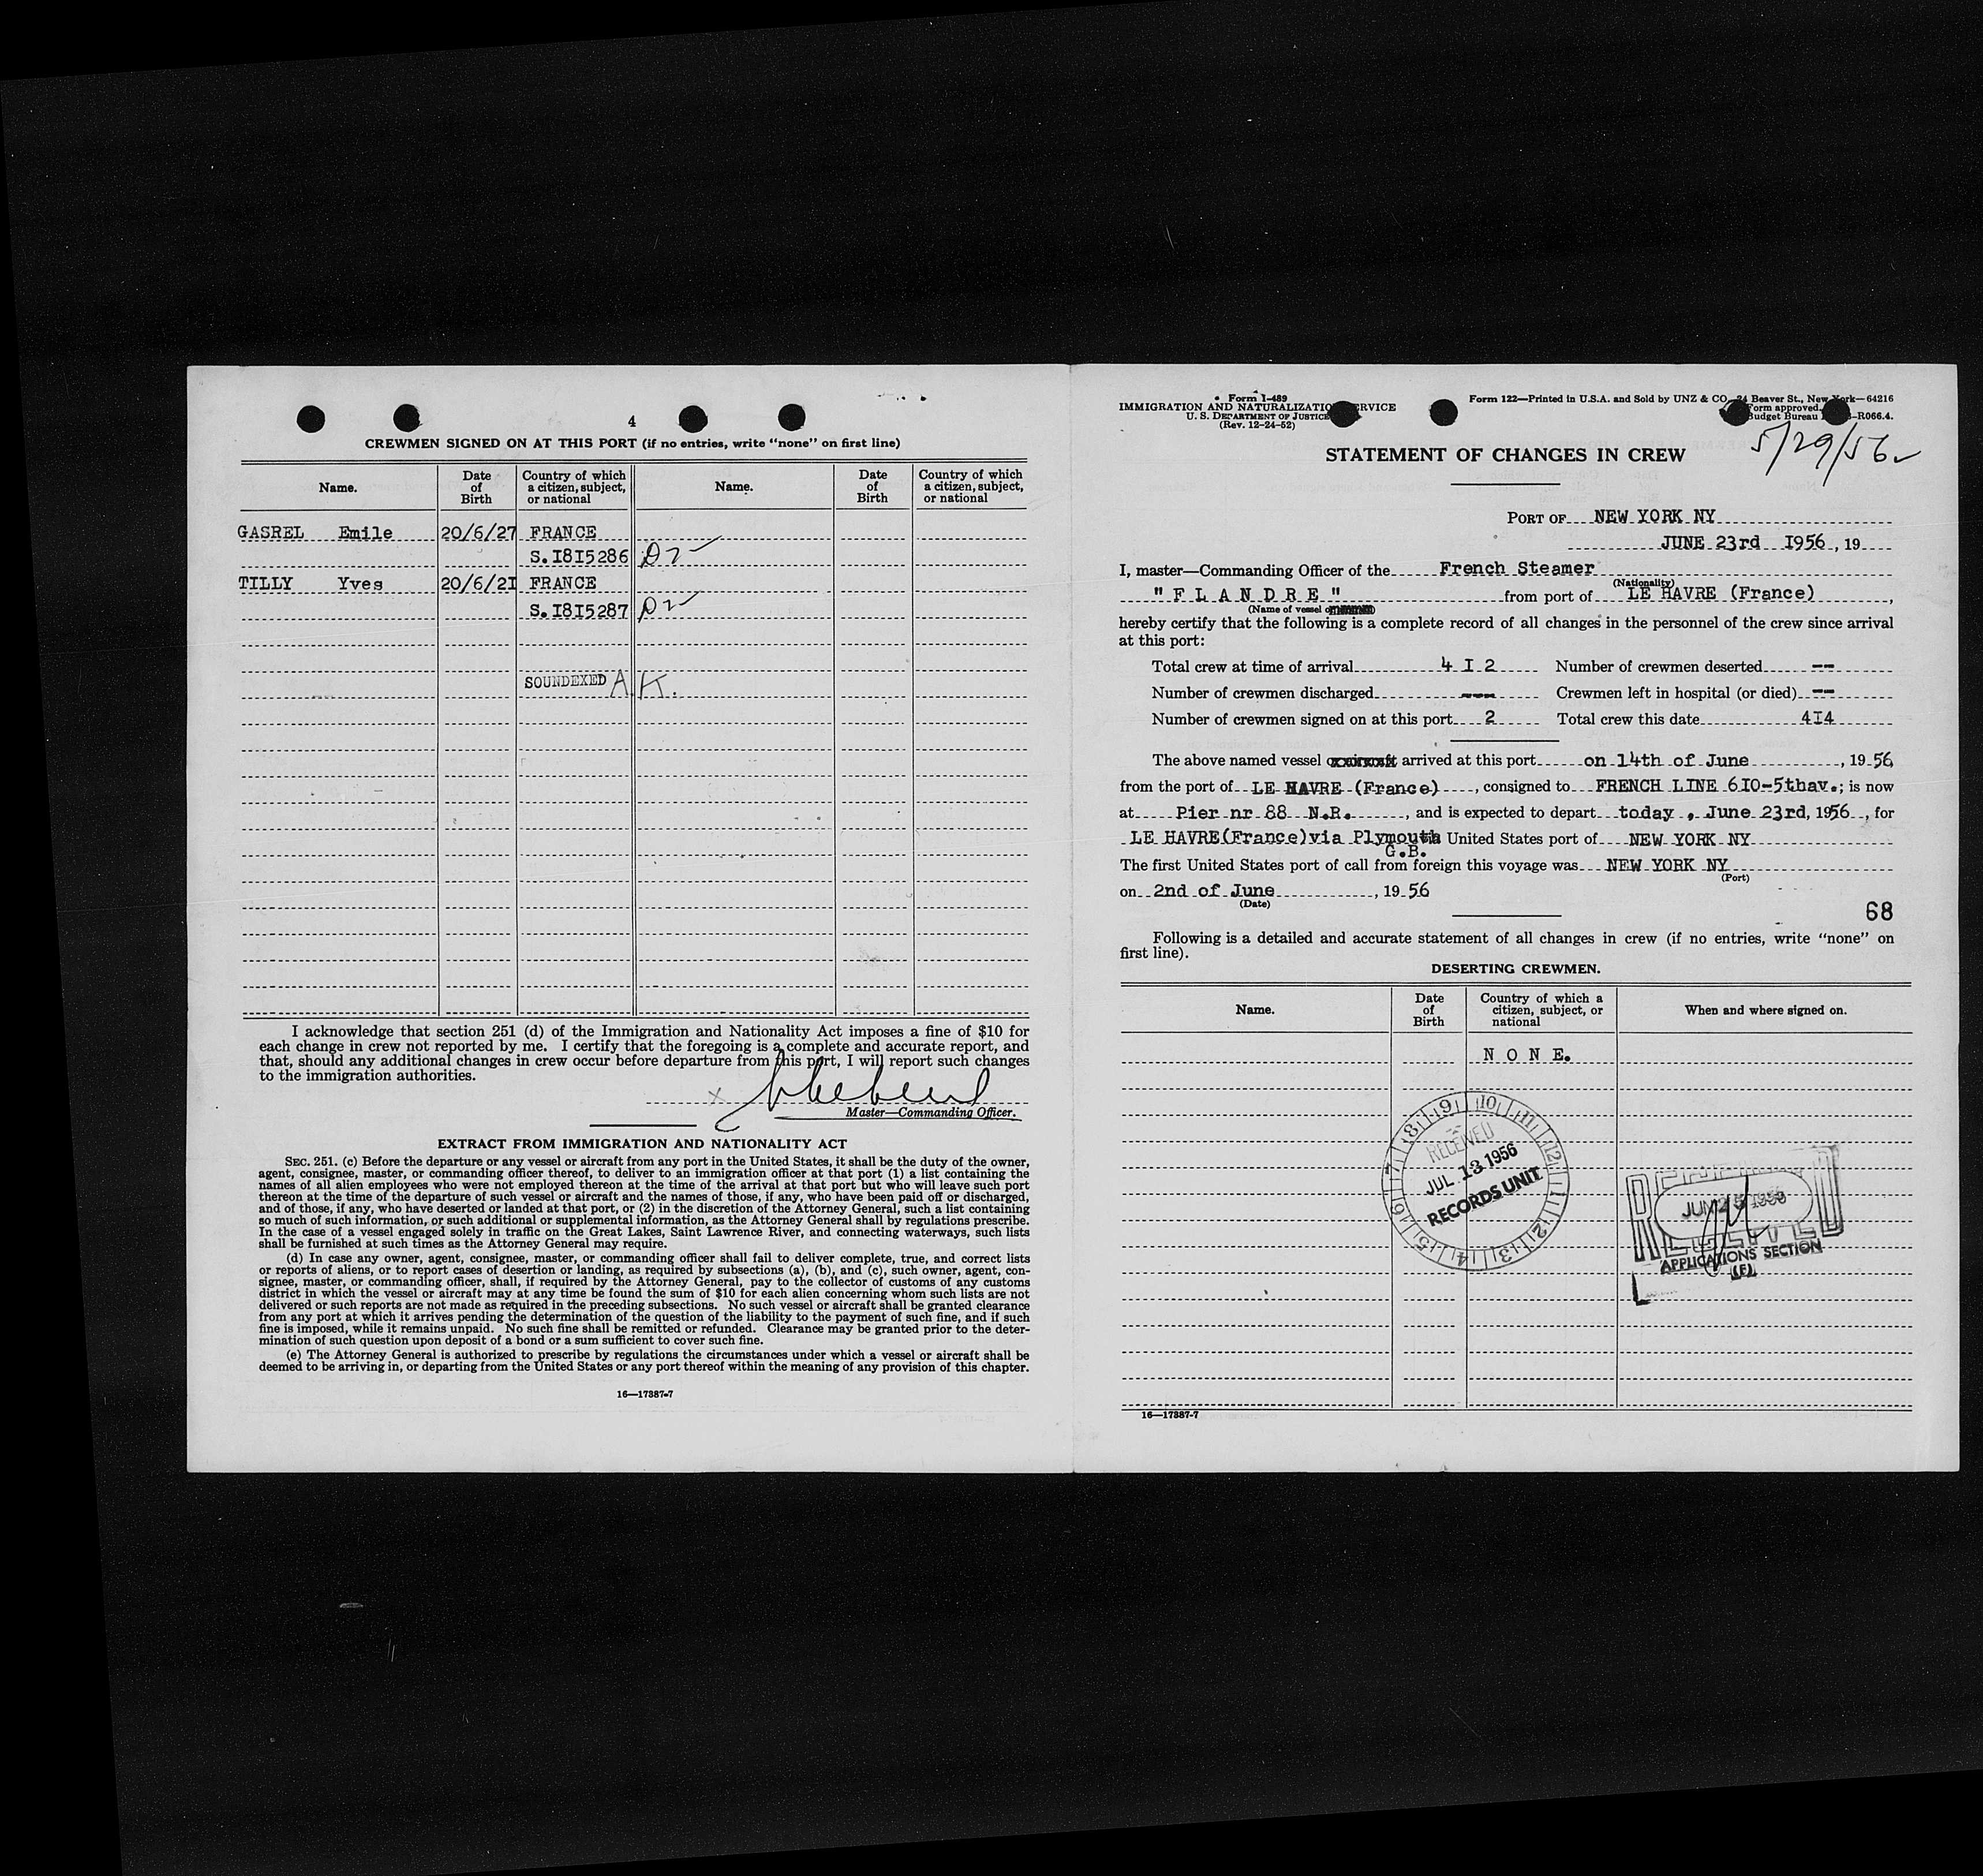 4
CREWMEN SIGNED ON AT THIS PORT (if no entries, write "none" on first line)
Name. Date of Birth Country of which a citizen, subject, or national Name. Date of Birth Country of which a citizen, subject, or national
GASREL Emile 20/6/27 FRANCE
S.I8I5286
TILLY Yves 20/6/2I FRANCE
S.I8I5287
SOUNDEXED A.K.
I acknowledge that section 251 (d) of the Immigration and Nationality Act imposes a fine of $10 for
each change in crew not reported by me. I certify that the foregoing is a complete and accurate report, and
that, should any additional changes in crew occur before departure from this port, I will report such changes
to the immigration authorities.
x
Master—Commanding Officer.
EXTRACT FROM IMMIGRATION AND NATIONALITY ACT
SEC. 251. (c) Before the departure or any vessel or aircraft from any port in the United States, it shall be the duty of the owner,
agent, consignee, master, or commanding officer thereof, to deliver to an immigration officer at that port (1) a list containing the
names of all alien employees who were not employed thereon at the time of the arrival at that port but who will leave such port
thereon at the time of the departure of such vessel or aircraft and the names of those, if any, who have been paid off or discharged,
and of those, if any, who have deserted or landed at that port, or (2) in the discretion of the Attorney General, such a list containing
so much of such information, or such additional or supplemental information, as the Attorney General shall by regulations prescribe.
In the case of a vessel engaged solely in traffic on the Great Lakes, Saint Lawrence River, and connecting waterways, such lists
shall be furnished at such times as the Attorney General may require.
(d) In case any owner, agent, consignee, master, or commanding officer shall fail to deliver complete, true, and correct lists
or reports of aliens, or to report cases of desertion or landing, as required by subsections (a), (b), and (c), such owner, agent, con-
signee, master, or commanding officer, shall, if required by the Attorney General, pay to the collector of customs of any customs
district in which the vessel or aircraft may at any time be found the sum of $10 for each alien concerning whom such lists are not
delivered or such reports are not made as required in the preceding subsections. No such vessel or aircraft shall be granted clearance
from any port at which it arrives pending the determination of the question of the liability to the payment of such fine, and if such
fine is imposed, while it remains unpaid. No such fine shall be remitted or refunded. Clearance may be granted prior to the deter-
mination of such question upon deposit of a bond or a sum sufficient to cover such fine.
(e) The Attorney General is authorized to prescribe by regulations the circumstances under which a vessel or aircraft shall be
deemed to be arriving in, or departing from the United States or any port thereof within the meaning of any provision of this chapter.
16—17387-7
Form I-489
IMMIGRATION AND NATURALIZATION SERVICE
U. S. DEPARTMENT OF JUSTICE
(Rev. 12-24-52)
Form 122—Printed in U.S.A. and Sold by UNZ & CO., 24 Beaver St., New York—64216
Form approved.
Budget Bureau -R066.4.
5/29/56
STATEMENT OF CHANGES IN CREW
PORT OF NEW YORK NY
JUNE 23rd I956, 19
I, master—Commanding Officer of the French Steamer
(Nationality)
" F L A N D R E " from port of LE HAVRE (France),
(Name of vessel
hereby certify that the following is a complete record of all changes in the personnel of the crew since arrival
at this port:
Total crew at time of arrival 4 I 2 Number of crewmen deserted --
Number of crewmen discharged --- Crewmen left in hospital (or died) --
Number of crewmen signed on at this port 2 Total crew this date 4I4
The above named vessel arrived at this port on 14th of June, 1956
from the port of LE HAVRE (France), consigned to FRENCH LINE 6I0-5thav.; is now
at Pier nr 88 N.R., and is expected to depart today, June 23rd, 1956, for
LE HAVRE(France)via Plymouth United States port of NEW YORK NY
G.B.
The first United States port of call from foreign this voyage was NEW YORK NY
(Port)
on 2nd of June, 1956
(Date)
68
Following is a detailed and accurate statement of all changes in crew (if no entries, write "none" on
first line).
DESERTING CREWMEN.
Name. Date of Birth Country of which a citizen, subject, or national When and where signed on.
N O N E.
9 10 11 12 1 2 3 4 5 6 7 8
RECEIVED
JUL 13 1956
RECORDS UNIT
RECEIVED
JUN 25 1956
APPLICATIONS SECTION
(E)
16—17387-7